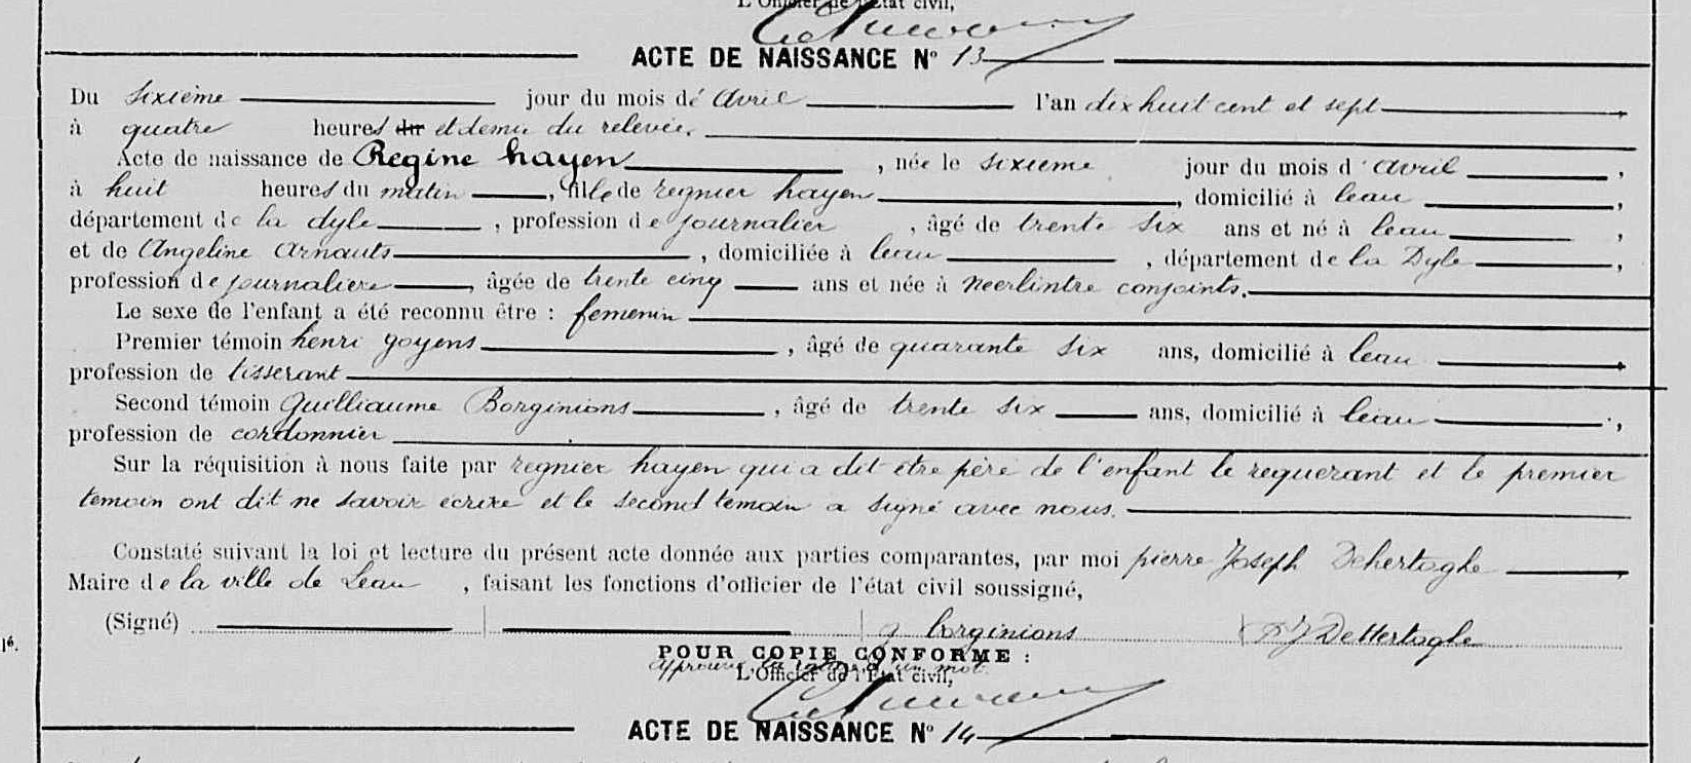 L'Officier de l'État civil,
ACTE DE NAISSANCE N° 13
Du sixième jour du mois de avril l'an dix huit cent et sept,
à quatre heures du et demie du relevée.
Acte de naissance de Regine hayen, née le sixieme jour du mois d'avril,
à huit heures du matin, fille de regnier hayen, domicilié à leau,
département de la dyle, profession de journalier, âgé de trente six ans et né à leau,
et de Angeline Arnauts, domiciliée à leau, département de la Dyle,
profession de journaliere, âgée de trente cinq ans et née à neerlintre conjoints.
Le sexe de l'enfant a été reconnu être : femenin
Premier témoin henri goyens, âgé de quarante six ans, domicilié à leau,
profession de tisserant
Second témoin Guilliaume Borginions, âgé de trente six ans, domicilié à leau,
profession de cordonnier
Sur la réquisition à nous faite par regnier hayen qui a dit etre père de l'enfant le requerant et le premier
temoin ont dit ne savoir ecrire et le second temoin a signé avec nous.
Constaté suivant la loi et lecture du présent acte donnée aux parties comparantes, par moi pierre Joseph Dehertoghe,
Maire de la ville de Leau, faisant les fonctions d'officier de l'état civil soussigné,
(Signé) g borginions PJ DeHertoghe
16.
POUR COPIE CONFORME :
approuvé la rature d'un mot.
L'Officier de l'État civil,
ACTE DE NAISSANCE N° 14